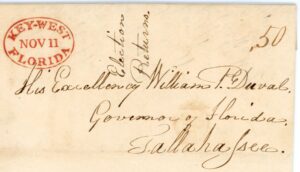 KEY-WEST
NOV 11
FLORIDA
Election
Returns.
50
His Excellency William P. Duval.
Governor of Florida.
Tallahassee.